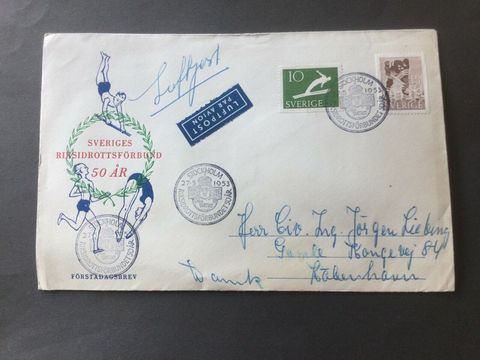 Luftpost
10
SVERIGE
SVERIGE
LUFTPOST
PAR AVION
STOCKHOLM
1953
RIKSIDROTTSFÖRBUNDET 50 ÅR
SVERIGES
RIKSIDROTTSFÖRBUND
50 ÅR
STOCKHOLM
27.5 1953
RIKSIDROTTSFÖRBUNDET 50 ÅR
STOCKHOLM
RIKSIDROTTSFÖRBUNDET 50 ÅR
FÖRSTADAGSBREV
Herr Civ. Ing. Jörgen
Gamle Kongevej 84
København